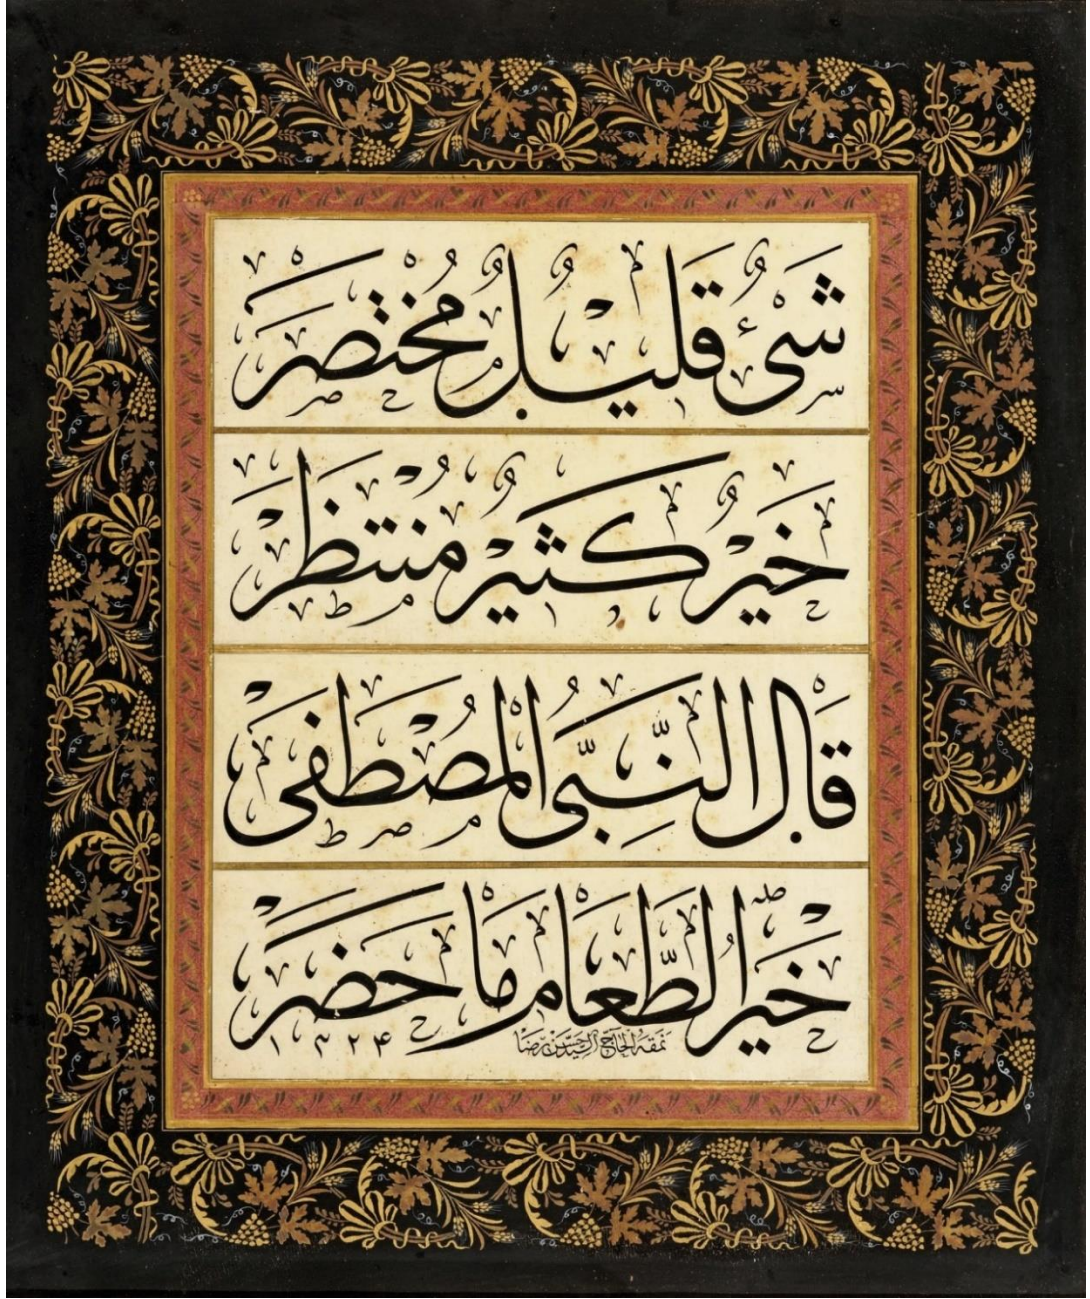 شَىْءٌ قَلِيلٌ مُخْتَصَرْ
خَيْرٌ كَثِيرٌ مُنْتَظَرْ
قَالَ النَّبِىُّ الْمُصْطَفَى
خَيْرُ الطَّعَامِ مَا حَضَرْ
نمقه الحاج السيد حسن رضا
١٣٢٤